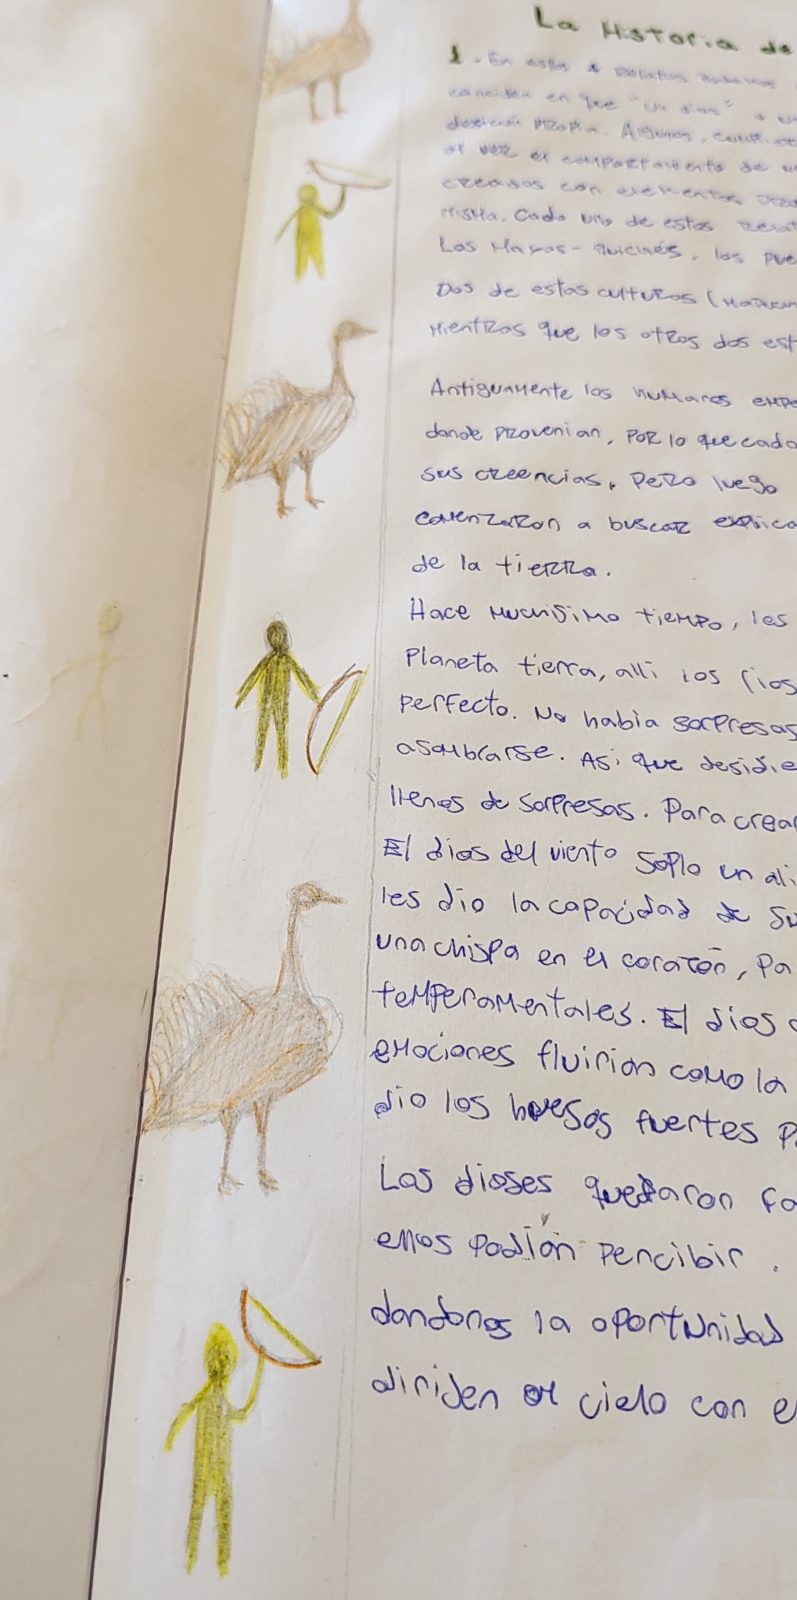 La Historia de
1. En estos 4 relatos humanos
coinciden en que "un dios" o
decisión propia. Algunos,
al ver el comportamiento de
creados con elementos
misma. Cada uno de estos
Los Mayas-quichés, los pue
Dos de estas culturas (
Mientras que los otros dos est
Antiguamente los humanos empe
donde provenian, por lo que cada
sus creencias, pero luego
comenzaron a buscar explica
de la tierra.
Hace muchisimo tiempo, los
Planeta tierra, alli los rios
perfecto. No habia sorpresas
asombrarse. Asi que desidie
llenos de sorpresas. Para crear
El dios del viento soplo un ali
les dio la capacidad de su
una chispa en el corazón, Pa
temperamentales. El dios
emociones fluirian como la
dio los huesos fuertes P
Los dioses quedaron fa
ellos podian percibir.
dandonos la oportunidad
diriden al cielo con e